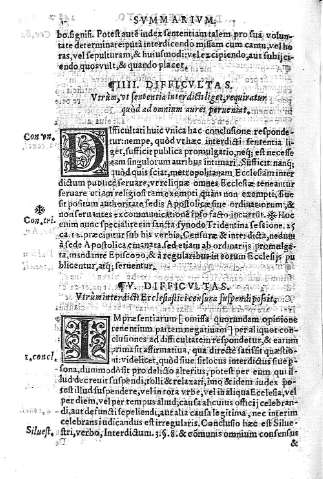 SVMMARIVM.
bo. signif. Potest autē iudex sententiam talem pro sua volun-
tate determinare: puta interdicendo missam cum cantu, vel ho
ras, vel sepulturam, & huiusmodi: vel excipiendo, aut subijci-
endo quos vult, & quando placet.
¶IIII. DIFFICVLTAS.
Vtrùm, vt sententia interdicti liget, requiratur,
quòd ad omnium aures perueniat.
Con vn.
Difficultati huic vnica hac conclusione responde-
tur: nempe, quòd vt hæc interdicti sententia li-
get, sufficit publica promulgatio, neq; est necesse
eam singulorum auribus intimari. Sufficit nanq;
quòd quis sciat, metropolitanam Ecclesiam inter
dictum publicè seruare, vt reliquæ omnes Ecclesiæ teneantur
seruare etiam religiosi exempti quàm non exempti, siue
sit positum authoritate sedis Apostolicæ siue ordinariorum, &
non seruantes excommunicatione ipso facto incurrūt. Hoc
Con. tri.
enim nunc specialiter in sancta synodo Tridentina sessione, 25
ca. 12. præcipitur sub his verbis, Censuræ & interdicta, nedum
à sede Apostolica emanata, sed etiam ab ordinarijs promulga-
ta, mandante Episcopo, & à regularibus in eorum Ecclesijs pu
blicentur, atq; seruentur.
¶V. DIFFICVLTAS.
Vtrùm interdicti Ecclesiastici censura suspendi possit.
IMpræsentiarum (omissa quorundam opinione
tenentium partem negatiuam) per aliquot con-
clusiones ad difficultatem respondetur, & earum
1, concl.
prima sit affirmatiua, quæ directè satisfacit quæstio
ni: videlicet, quòd siue sit locus interdictus siue p
sona, dummodò sit pro delicto alterius, potest per eum qui il-
lud decreuit suspendi, tolli & relaxari, imò & idem iudex po-
test illud suspendere, vel in tota vrbe, vel in aliqua Ecclesia, vel
per diem, vel per tempus aliud, causa alicuius officij celebran-
di, aut defuncti sepeliendi, aut alia causa legitima, nec interim
celebrans iudicandus est irregularis. Conclusio hæc est Silue-
Siluest.
stri, verbo, Interdictum. 3. §. 8. & comunis omnium consensus
&